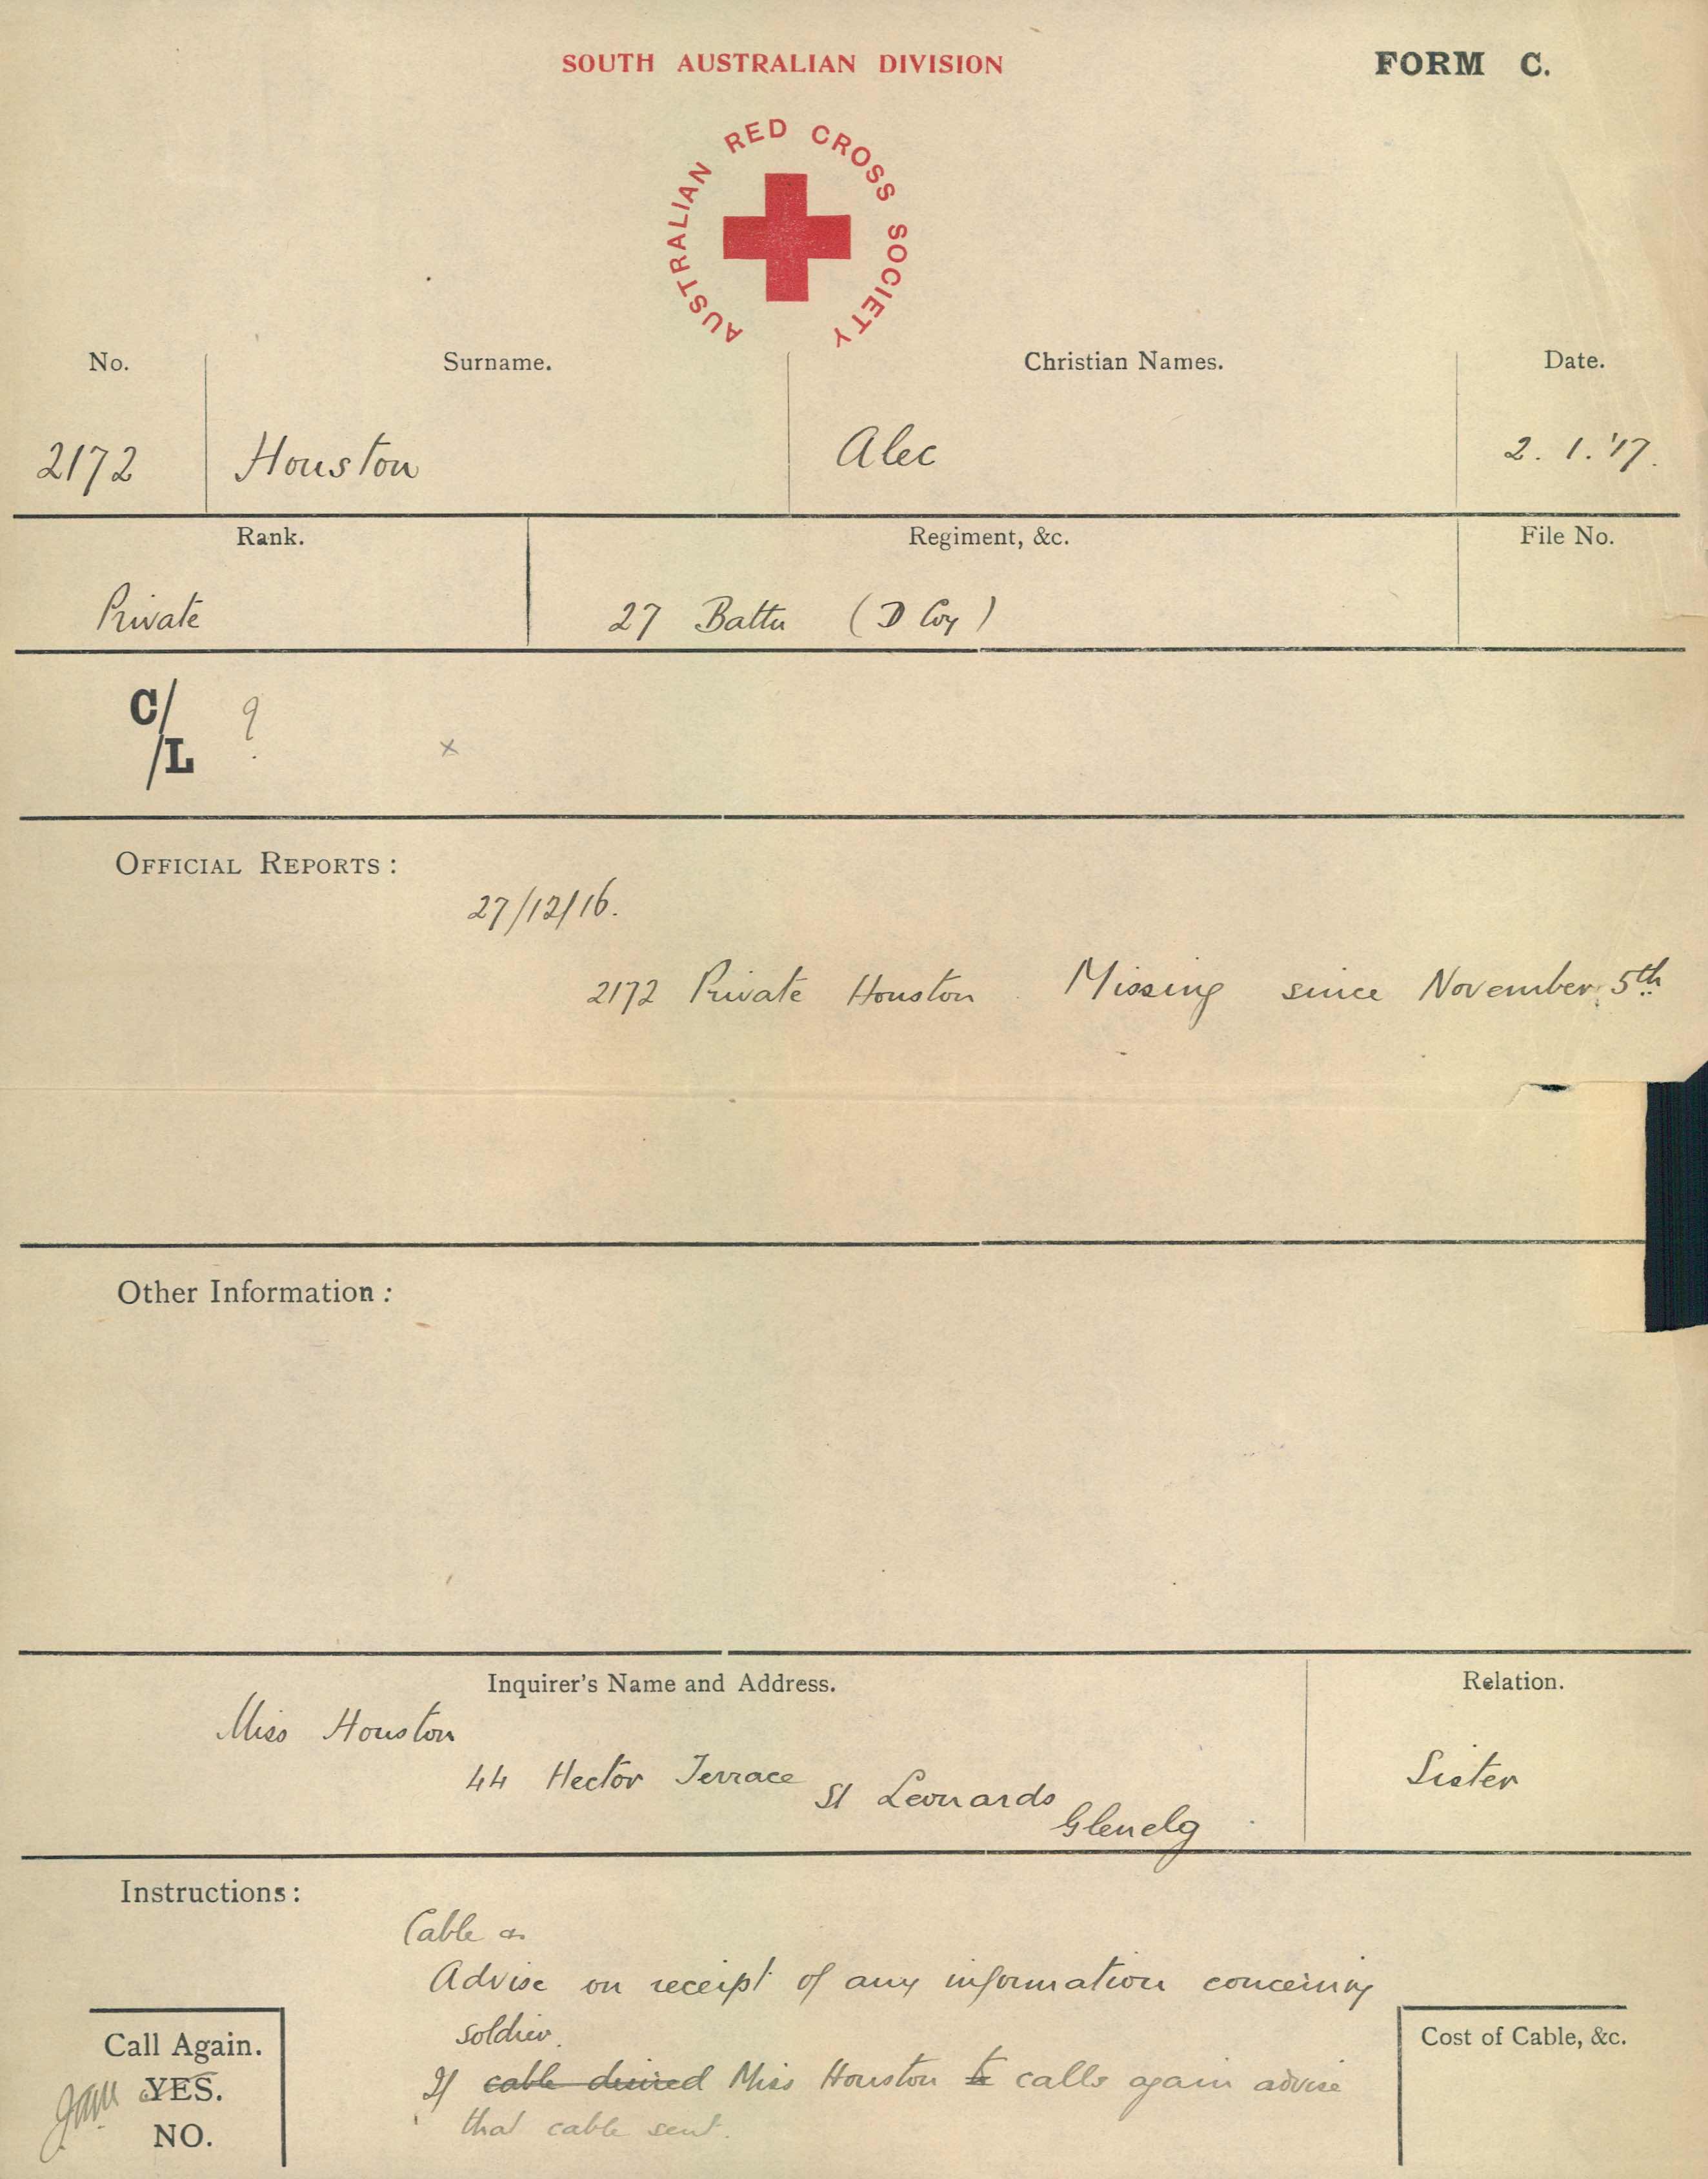 SOUTH AUSTRALIAN DIVISION
FORM C.
AUSTRALIAN RED CROSS SOCIETY
No. Surname. Christian Names. Date.
2172 Houston Alec 2. 1. '17.
Rank. Regiment, &c. File No.
Private 27 Battn (D Coy)
C/ ?
/L x
OFFICIAL REPORTS:
27/12/16.
2172 Private Houston Missing since November 5th
Other Information:
Inquirer's Name and Address. Relation.
Miss Houston
44 Hector Terrace St Leonards Sister
Glenelg
Instructions:
Cable
Advise on receipt of any information concerning
soldier.
Call Again. Cost of Cable, &c.
If cable desired Miss Houston to calls again advise
YES.
that cable sent.
NO.